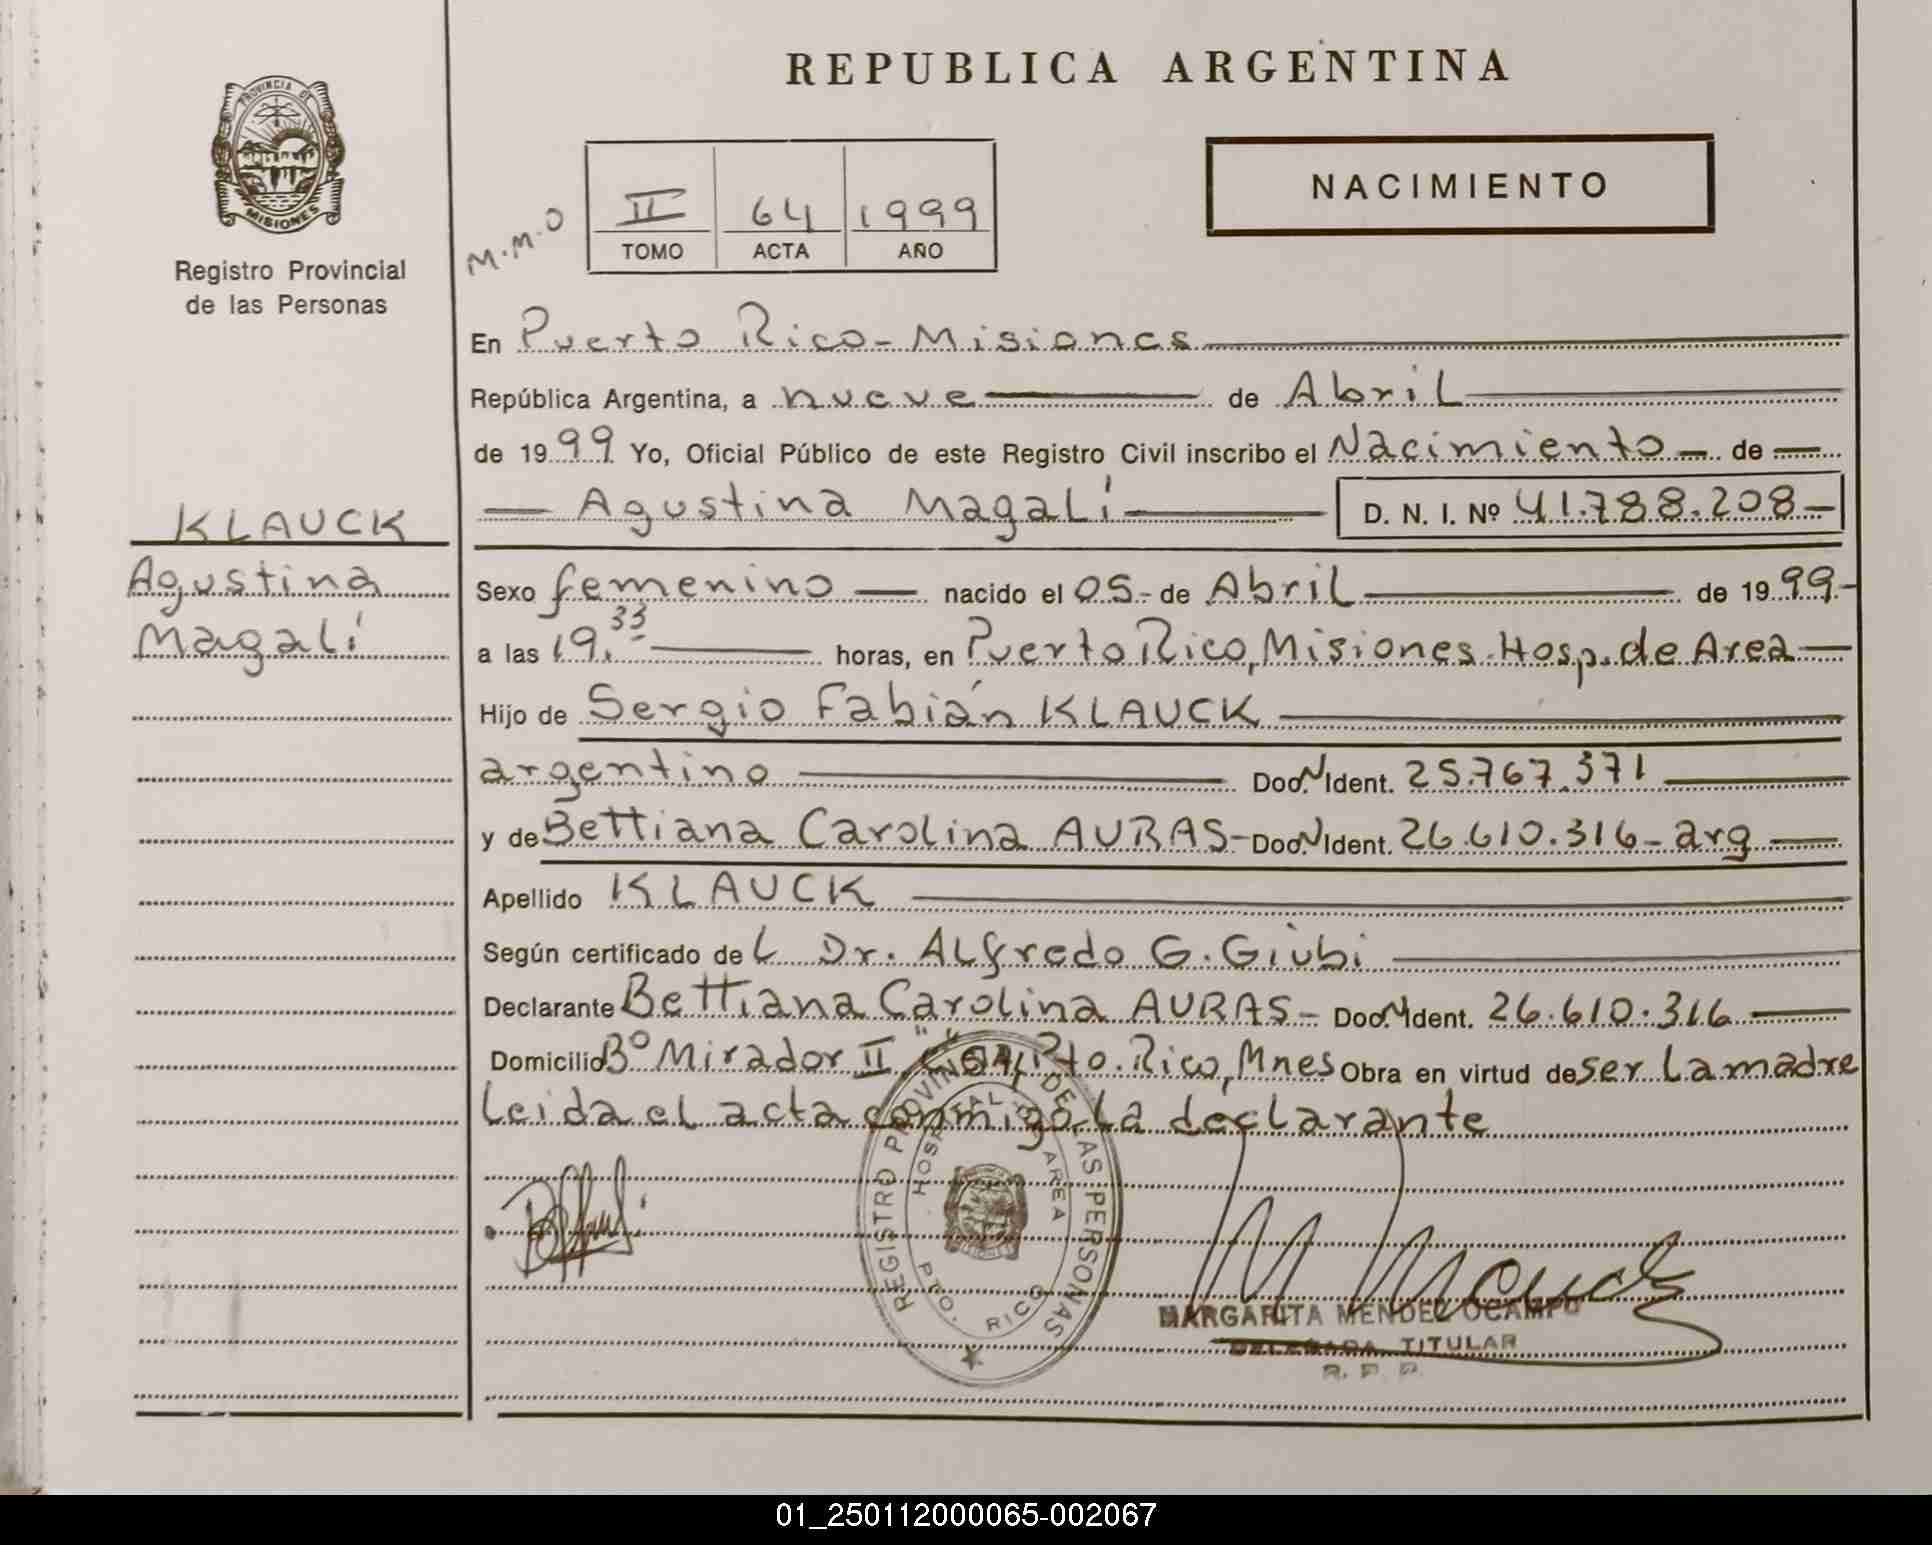 REPUBLICA ARGENTINA
PROVINCIA DE
MISIONES
Registro Provincial
de las Personas
M.M.O
II 64 1999
TOMO ACTA AÑO
NACIMIENTO
En Puerto Rico - Misiones
República Argentina, a nueve de Abril
de 1999 Yo, Oficial Público de este Registro Civil inscribo el Nacimiento - de
Agustina Magalí D. N. I. Nº 41.788.208-
KLAUCK
Agustina
Magalí
Sexo femenino nacido el 05 - de Abril de 1999-
a las 19.33 horas, en Puerto Rico, Misiones. Hosp. de Area
Hijo de Sergio Fabián KLAUCK
argentino Doc. N Ident. 25.767.371
y de Bettiana Carolina AURAS - Doc. N Ident. 26.610.316 - arg
Apellido KLAUCK
Según certificado del Dr. Alfredo G. Giubi
Declarante Bettiana Carolina AURAS - Doc. N Ident. 26.610.316
Domicilio Bº Mirador II Pto. Rico, Mnes Obra en virtud de ser la madre
leida el acta conmigo la declarante
REGISTRO PROVINCIAL DE LAS PERSONAS
HOSPITAL DE AREA
PTO. RICO
MARGARITA MENDEZ OCAMPO
DELEGADA TITULAR
R. P. P.
01_250112000065-002067